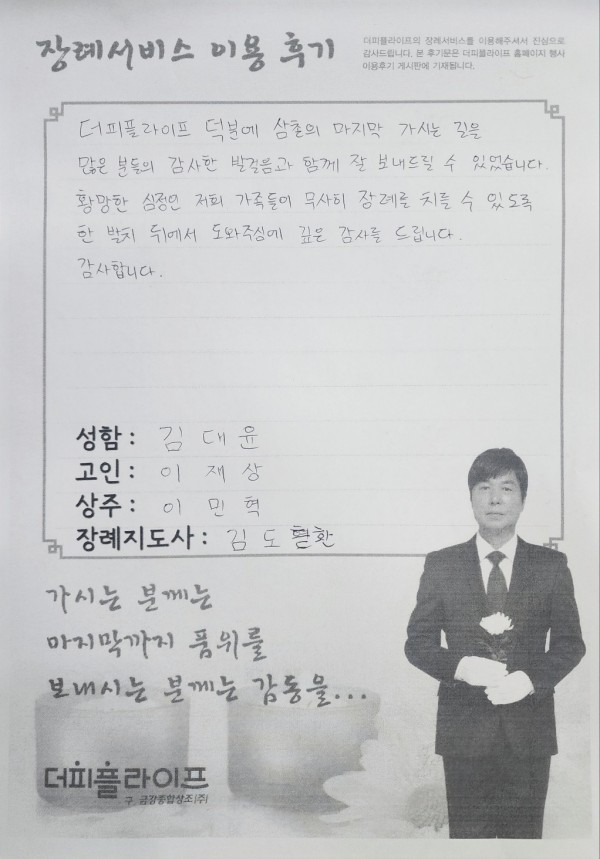 장례서비스 이용 후기
더피플라이프의 장례서비스를 이용해주셔서 진심으로
감사드립니다. 본 후기문은 더피플라이프 홈페이지 행사
이용후기 게시판에 기재됩니다.
더피플라이프 덕분에 삼촌의 마지막 가시는 길을
많은 분들의 감사한 발걸음과 함께 잘 보내드릴 수 있었습니다.
황망한 심정인 저희 가족들이 무사히 장례를 치를 수 있도록
한 발치 뒤에서 도와주심에 깊은 감사를 드립니다.
감사합니다.
성함 : 김대윤
고인 : 이재상
상주 : 이민혁
장례지도사 : 김도환
가시는 분께는
마지막까지 품위를
보내시는 분께는 감동을...
더피플라이프
구. 금강종합상조(주)